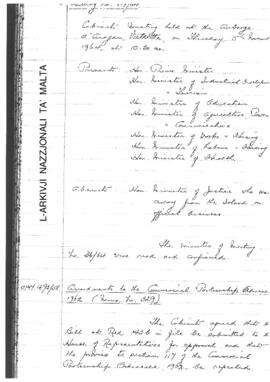 Cabinet Meeting held at the Auberge
d'Aragon, Valletta, on Thursday 5th
1964 at 10.30 am.
Present: Hon. Prime Minister
Hon. Minister of Industrial
& Tourism
Hon. Minister of Education
Hon. Minister of Agriculture, Power
& Communications
Hon. Minister of Works & Housing
Hon. Minister of Labour &
Hon. Minister of Health
Absent: Hon. Minister of Justice who was
away from the Island on
official business.
The minutes of Meeting
No. 26/64 were read and confirmed.
Amendments to the Commercial Partnership Ordinance
1962 (Memo. No.
The Cabinet agreed that the
Bill at Red 43b in file be submitted to the
House of Representatives for approval and that
the proviso to section 117 of the Commercial
Partnership Ordinance, 1962 be repealed.
L-ARKIVJI NAZZJONALI TA' MALTA